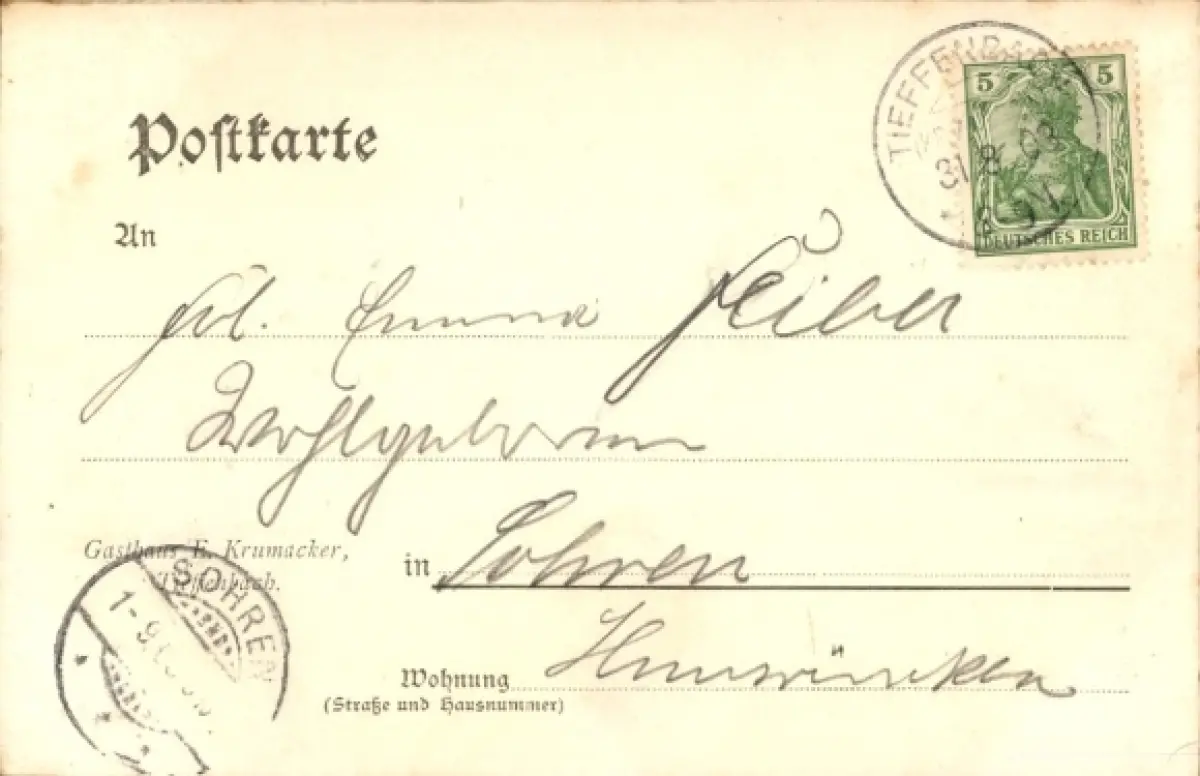 TIEFFENBACH
31 8 03
5 5
DEUTSCHES REICH
Postkarte
An
Frl. Emma
Wohlgeboren
Gasthaus E. Krumacker,
Tieffenbach.
in Sohren
SOHREN
1-9
Wohnung Hunsrücken
(Straße und Hausnummer)